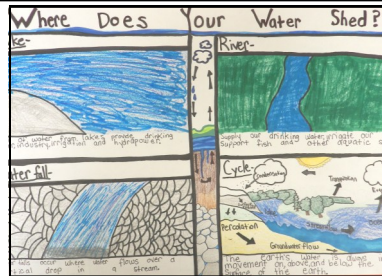 Where Does Your Water Shed?
ke-
of water from lakes provide drinking
industry, irrigation and hydropower.
River-
supply our drinking water, irrigate our
support fish and other aquatic
ter fall-
falls occur where water flows over a
tical drop in a stream.
Cycle-
Condensation
Transpiration
Percolation
Groundwater Flow
The earth's water is always
movement on, above, and below the
surface of the earth.